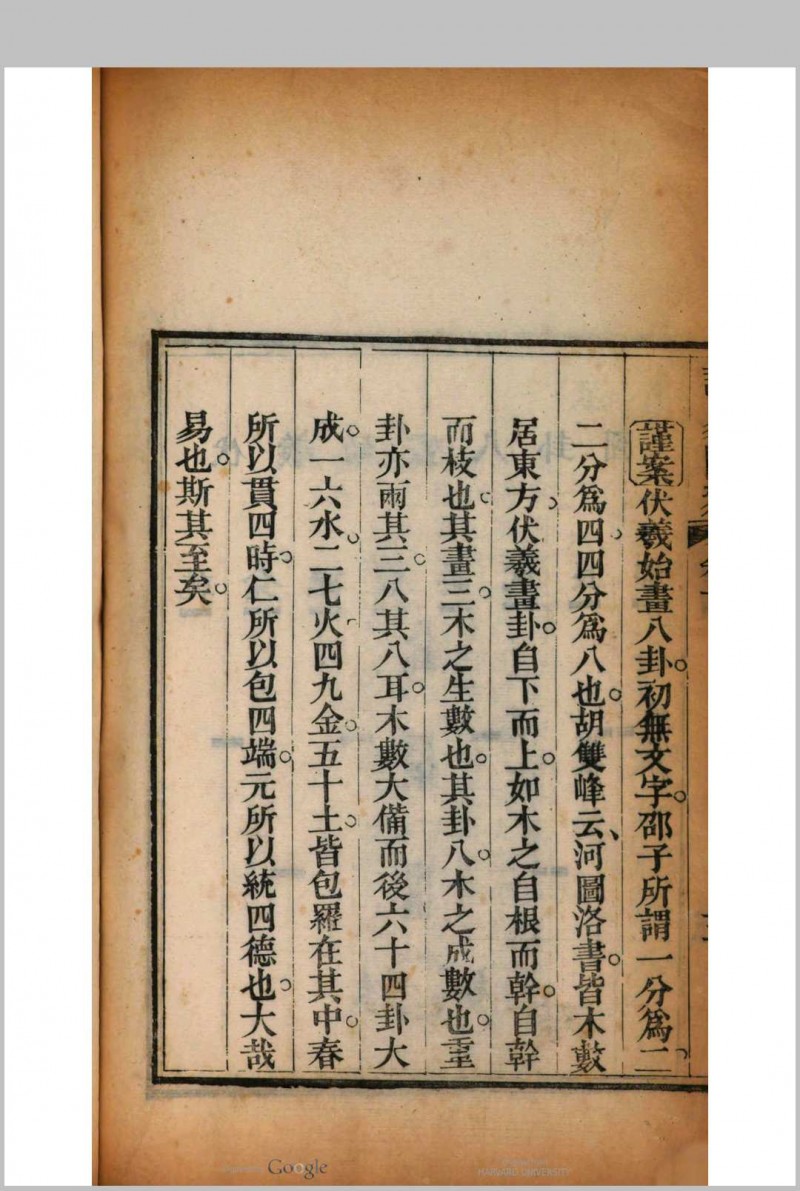 謹案伏羲始畫八卦。初無文字。邵子所謂一分爲二、
二分爲四、四分爲八也。胡雙峰云、河圖洛書。皆木數
居東方、伏羲畫卦。自下而上。如木之自根而幹。自幹
而枝也。其畫三。木之生數也。其卦八。木之成數也。重
卦亦兩其三。八其八耳。木數大備。而後六十四卦大
成。一六水。二七火、四九金。五十土。皆包羅在其中。春
所以貫四時。仁所以包四端。元所以統四德也。大哉
易也。斯其至矣。
Google
HARVARD UNIVERSITY